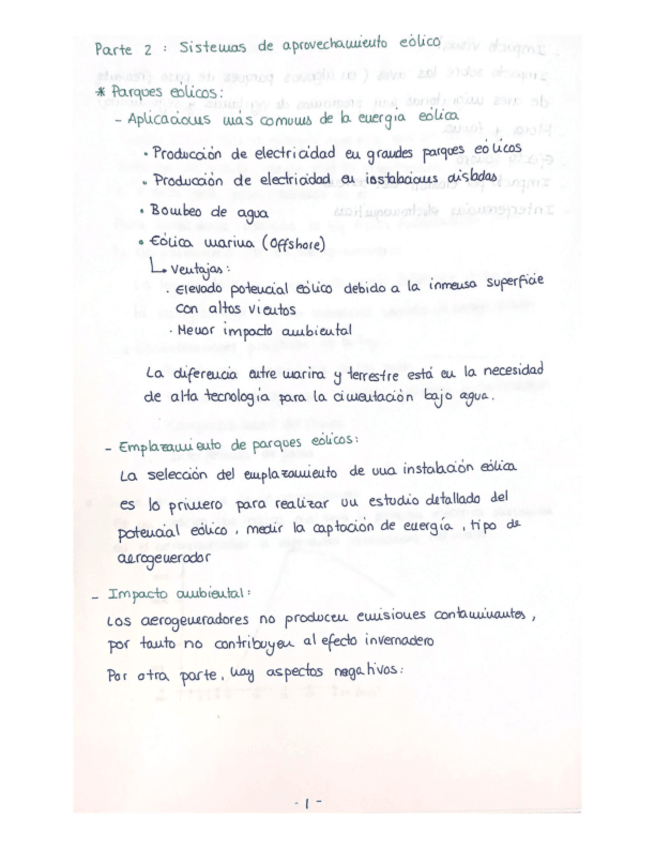 Parte 2 : Sistemas de aprovechamiento eólico
* Parques eólicos:
- Aplicaciones más comunes de la energía eólica
· Producción de electricidad en grandes parques eólicos
· Producción de electricidad en instalaciones aisladas
· Bombeo de agua
· Eólica marina (Offshore)
↳ Ventajas:
· Elevado potencial eólico debido a la inmensa superficie
con altos vientos
· Menor impacto ambiental
La diferencia entre marina y terrestre está en la necesidad
de alta tecnología para la cimentación bajo agua.
- Emplazamiento de parques eólicos:
La selección del emplazamiento de una instalación eólica
es lo primero para realizar un estudio detallado del
potencial eólico, medir la captación de energía, tipo de
aerogenerador
- Impacto ambiental:
Los aerogeneradores no producen emisiones contaminantes,
por tanto no contribuyen al efecto invernadero
Por otra parte, hay aspectos negativos:
- 1 -